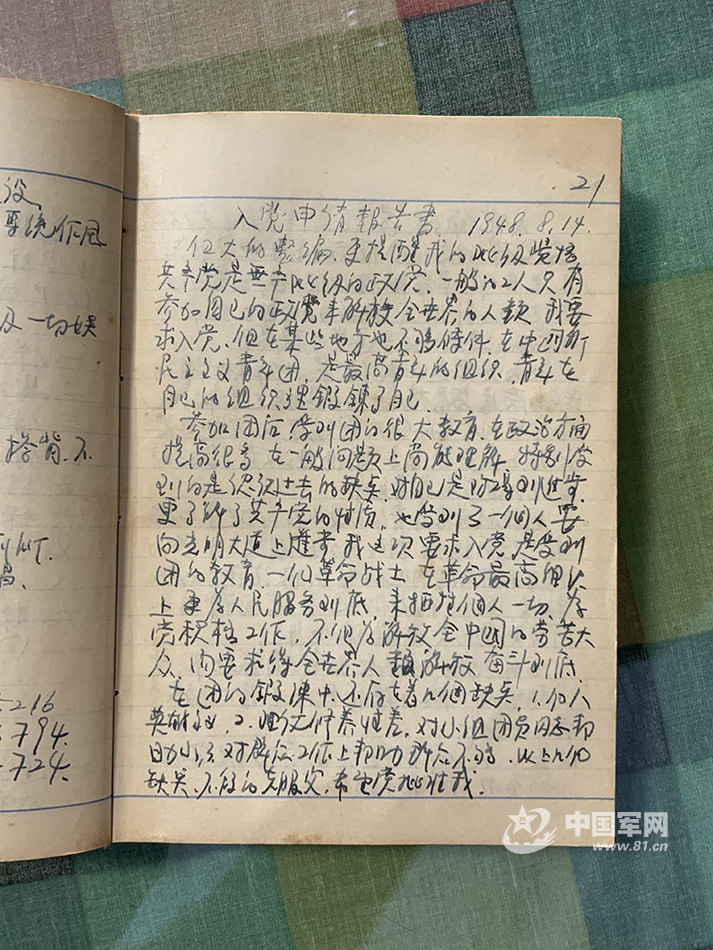 设
系统作风
及一切娱
搭背.不
216
794.
724.
.21
入党申请报告书 1948.8.14.
伟大的整编.更提醒我的阶级觉悟
共产党是无产阶级的政党.一般的工人只有
参加自己的政党来解放全世界的人类 我要
求入党.但在某些地方也不够条件.在中国新
民主主义青年团.是最高青年的组织.青年在
自己的组织里锻鍊了自己.
参加团后.受到团的很大教育.在政治方面
提高很高 在一般问题上尚能理解.特别学
到的是认识过去的缺点.对自己是
更了解了共产党的性质.也学到了一个人要
向光明大道上 我这次要求入党是受到
团的教育.一个革命战士在革命最高组织
上要为人民服务到底.来牺牲個人一切.为
党积极工作.不但为解放全中国的劳苦大
众.的要求得全世界人类解放奋斗到底.
在团的锻鍊中.还存在着几個缺点.1.個人
英雄主义.2. 修养性差.对小组团员同志帮
助小.3.对群众工作上帮助群众不够.以上几個
缺点.不断的克服它.希望党批准我.
中国军网
www.81.cn